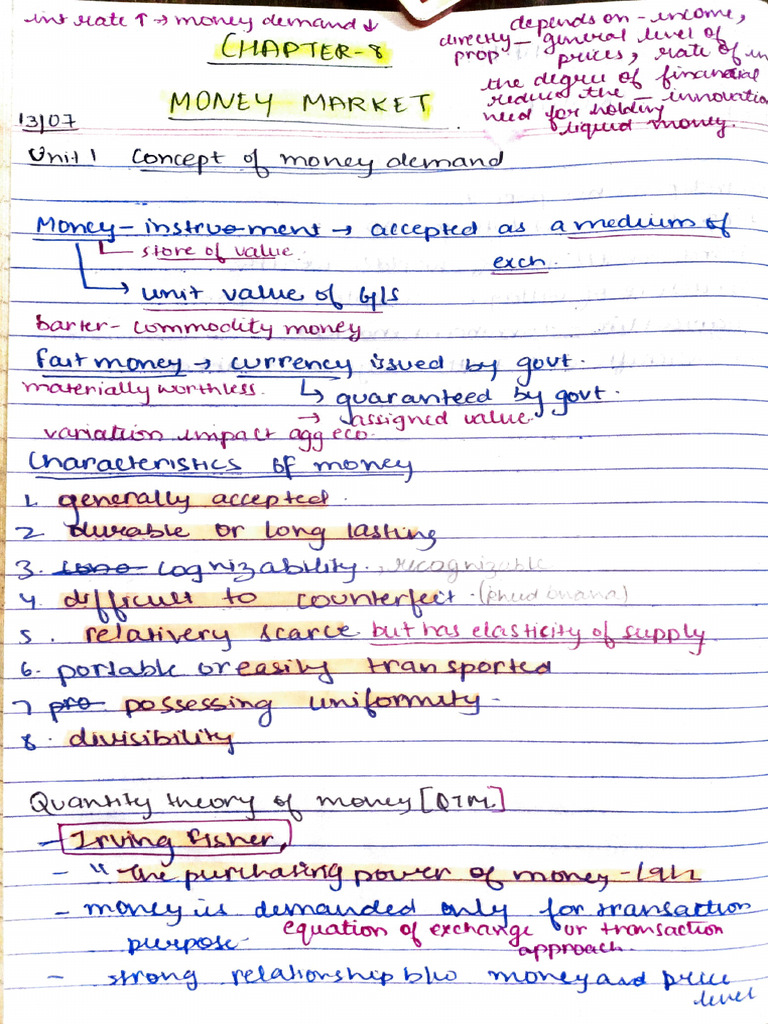 int rate ↑ → money demand ↓
depends on - income,
directly - general level of
prop prices, rate of in
the degree of financial
reduce the - innovation
need for holding
liquid money.
CHAPTER-8
MONEY MARKET
13/07
Unit 1 Concept of money demand
Money - instruement → accepted as a medium of
store of value exch.
→ unit value of G/S
barter - commodity money
fait money → currency issued by govt.
materially worthless. ↳ guaranteed by govt.
→ assigned value.
variation impact agg eco.
Characteristics of money
1. generally accepted.
2 durable or long lasting
3. cognizability., recognizable
4. difficult to counterfeit.
5. relativery scarce but has elasticity of supply
6. portable or easily transported
7 pro possessing uniformity.
8. divisibility
Quantity theory of money [QTM]
- Irving Fisher,
- "The purchasing power of money - 1911
- money is demanded only for transaction
purpose. equation of exchange or transaction
approach.
- strong relationship b/w money and price
level